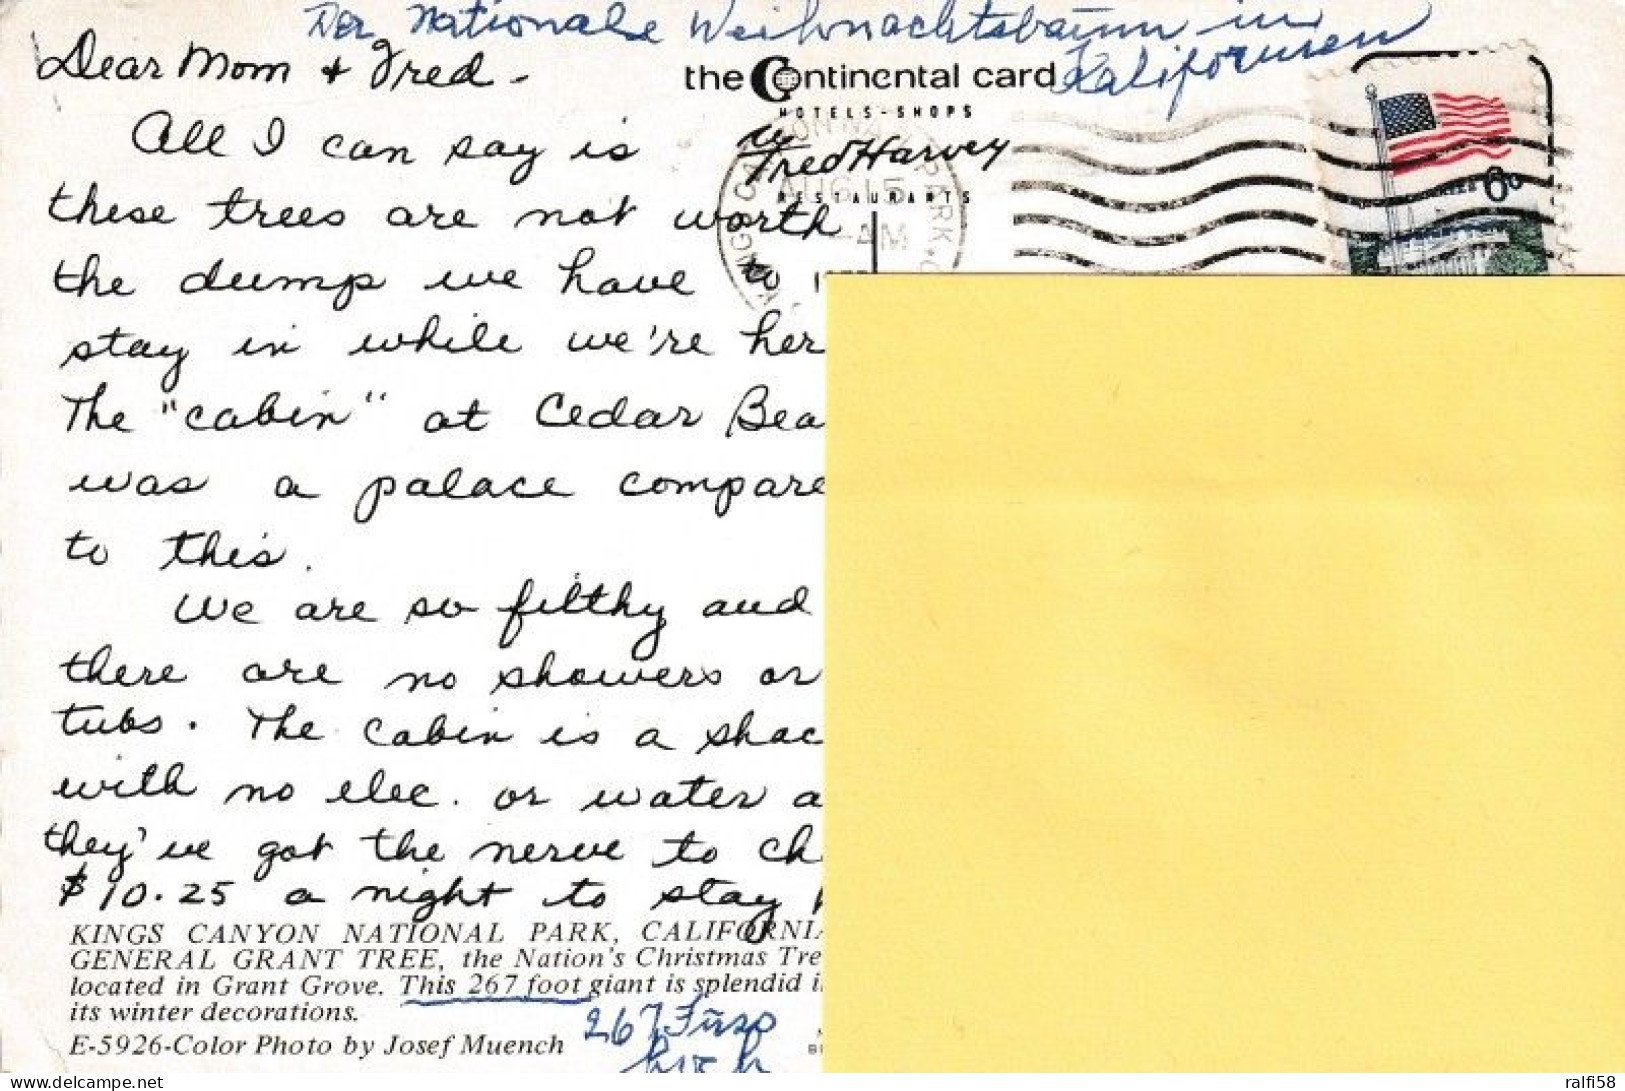 Der Nationale Weihnachtsbaum in
Kalifornien
Dear Mom + Fred -
the Continental card
HOTELS-SHOPS
Fred Harvey
RESTAURANTS
AUG 15
AM
6c
All I can say is
these trees are not worth
the dump we have to
stay in while we're her
The "cabin" at Cedar Bea
was a palace compare
to this.
We are so filthy and
there are no showers or
tubs. The cabin is a shac
with no elec. or water a
they've got the nerve to ch
$10.25 a night to stay
KINGS CANYON NATIONAL PARK, CALIFORNIA
GENERAL GRANT TREE, the Nation's Christmas Tre
located in Grant Grove. This 267 foot giant is splendid i
its winter decorations.
E-5926-Color Photo by Josef Muench
267 Fuss
hoch
delcampe.net
ralfi58